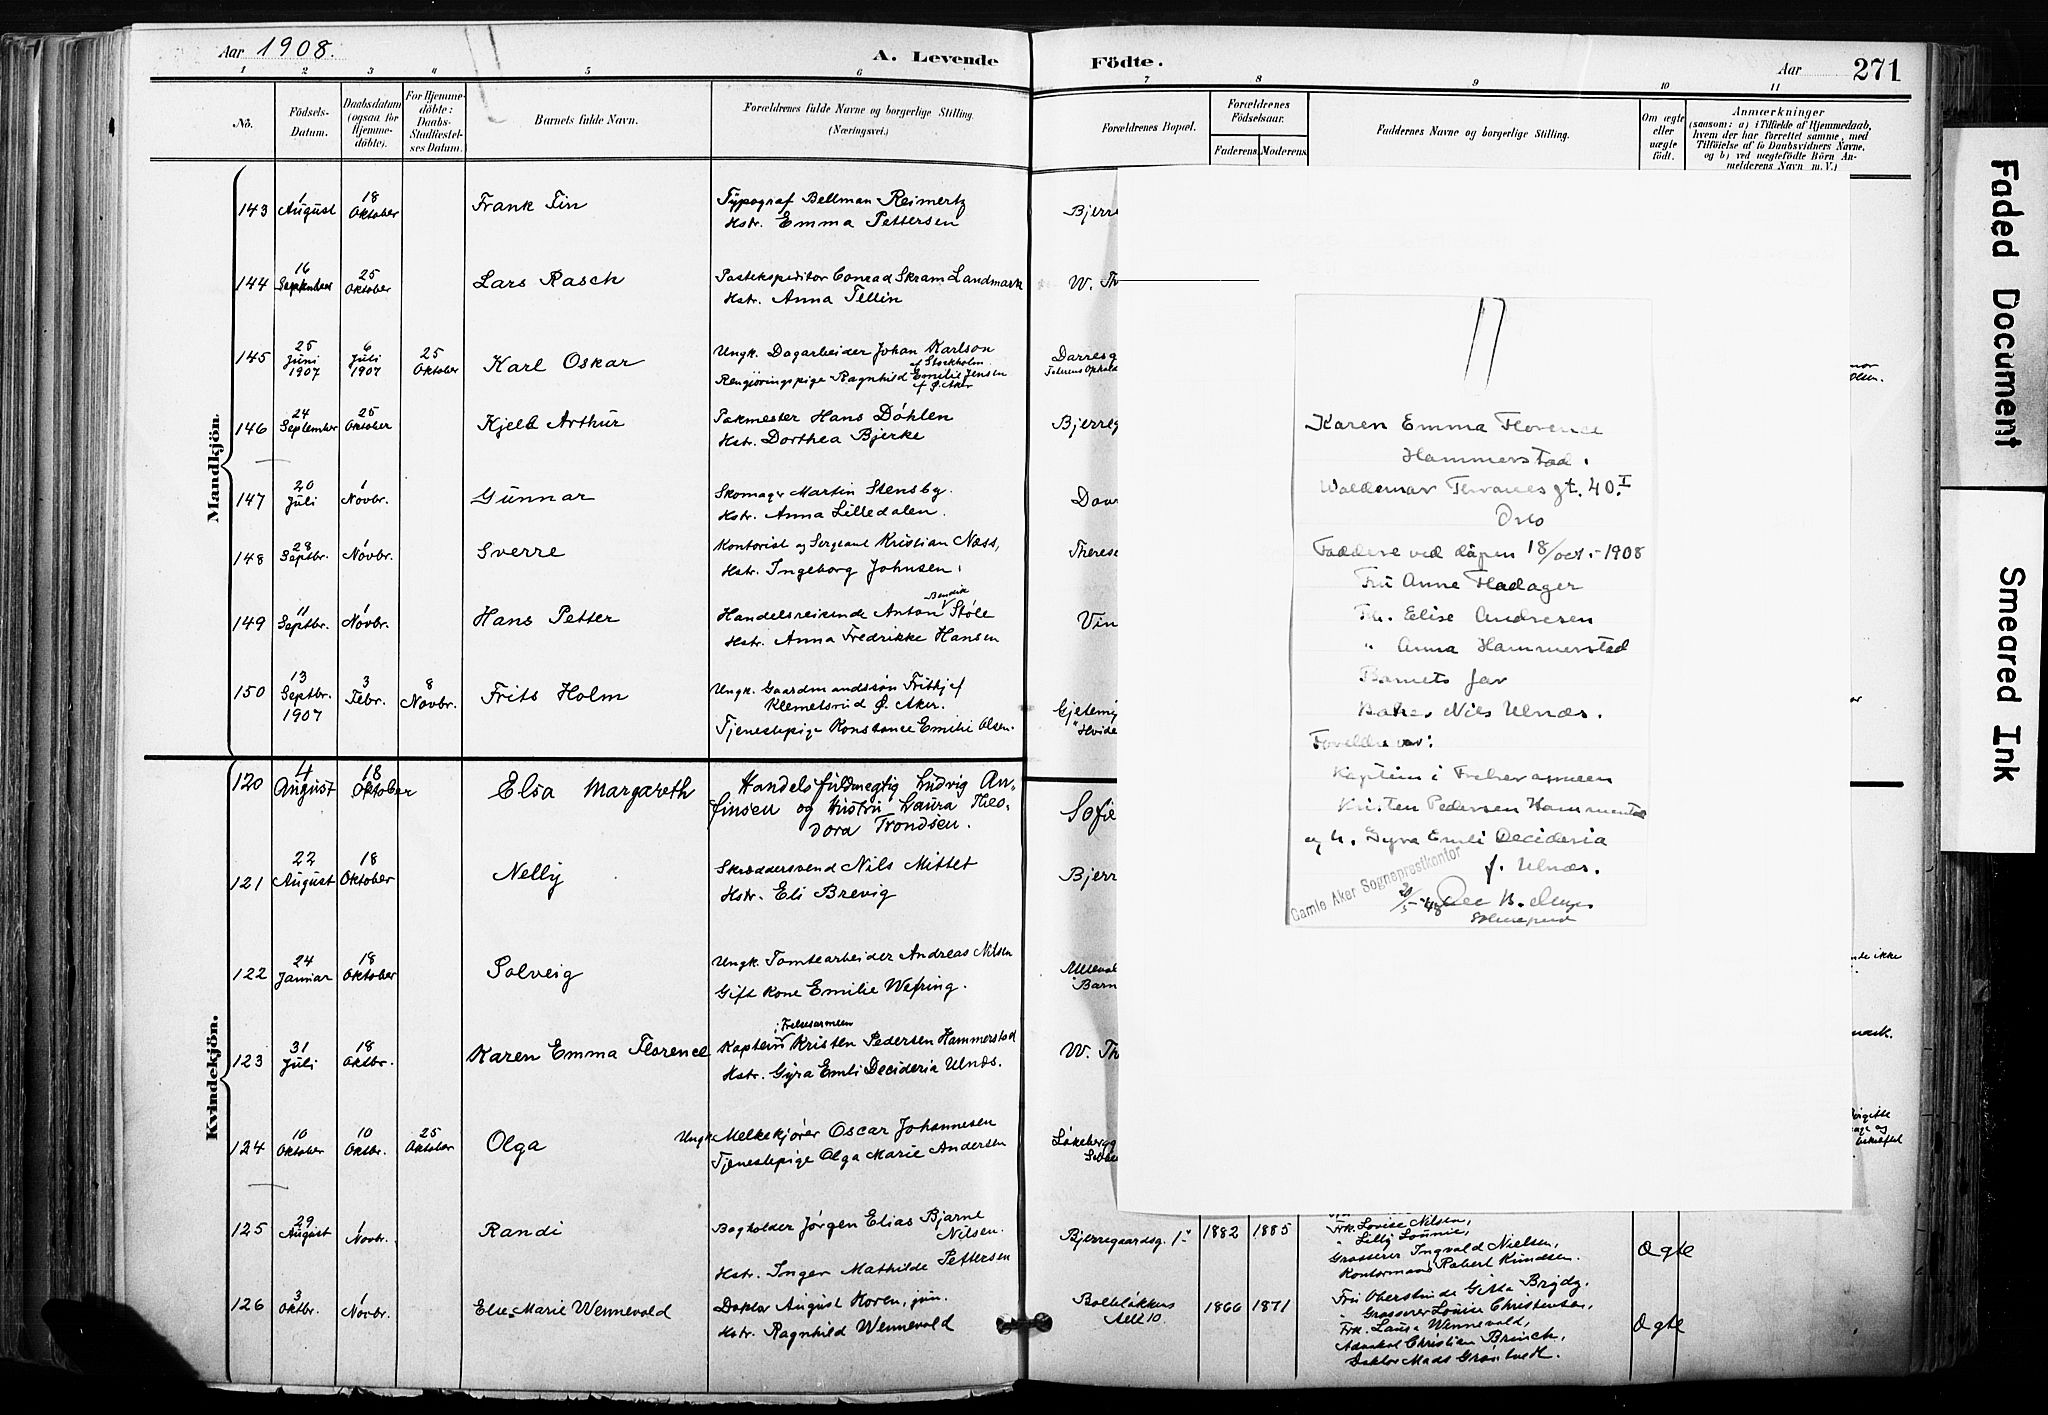 Aar 1908.
A. Levende
Födte.
Aar 271
1 2 3 4 5 6 7 8 9 10 11
No.
Födsels-
Datum.
Daabsdatum
(ogsaa for
Hjemme-
døbte).
For Hjemme-
døbte:
Daabs-
Stadfæstel-
ses Datum.
Barnets fulde Navn.
Forældrenes fulde Navne og borgerlige Stilling.
(Næringsvei.)
Forældrenes Bopæl.
Forældrenes
Födselsaar.
Faderens.
Moderens.
Faddernes Navne og borgerlige Stilling.
Om ægte
eller
uægte
født.
Anmærkninger
(saasom: a) i Tilfælde af Hjemmedaab,
hvem der har forrettet samme, med
Tilföielse af to Daabsvidners Navne,
og b) ved uægtefödte Börn An-
melderens Navn m. V.)
Mandkjön.
143
1 August
18 Oktober
Frank Fin
Typograf Bellman Reimertz
Hstr. Emma Pettersen
Bjerre
144
16 September
25 Oktober
Lars Rasch
Postekspeditor Conrad Skram Landmark
Hstr. Anna Tellin
W. Th
145
25 Juni 1907
6 Juli 1907
25 Oktober
Karl Oskar
Ungk. Dagarbeider Johan Karlson
af Stockholm
Rengjøringspige Ragnhild Emilie Jensen
af Ø. Aker
Darresg
146
24 September
25 Oktober
Kjell Arthur
Pakmester Hans Döhlen
Hstr. Dorthea Bjerke
Bjerreg
147
20 Juli
1 Novbr.
Gunnar
Skomager Martin Stensby.
Hstr. Anna Lilledalen.
148
28 Septbr.
1 Novbr.
Sverre
Kontorist og Sergeant Kristian Næss,
Hstr. Ingeborg Johnsen.
Therese
149
11 Septbr.
1 Novbr.
Hans Petter
Bendik
Handelsreisende Anton Støle
Hstr. Anna Fredrikke Hansen
Vin
150
13 Septbr. 1907
3 Febr.
8 Novbr.
Frits Holm
Ungk. Gaardmandssøn Frithjof
Klemetsrud Ø. Aker.
Tjenestepige Konstance Emilie Olsen.
Gjetemy
Kvindekjön.
120
4 August
18 Oktober
Elsa Margareth
Handelsfuldmegtig Ludvig An-
finsen og Hustru Laura Theo-
dora Trondsen.
Sofie
121
22 August
18 Oktober
Nelly
Skræddersvend Nils Mittet
Hstr. Eli Brevig
Bjerr
122
24 Januar
18 Oktober
Solveig
Ungk. Tomtearbeider Andreas Nilsen
Gift Kone Emilie Wefring.
Barn
123
31 Juli
18 Oktbr.
Karen Emma Florence
i Frelsesarmeen
Kaptein Kristen Pedersen Hammerstad
Hstr. Gyra Emli Decideria Ulnæs.
W. Th
124
10 Oktober
10 Oktbr.
25 Oktober
Olga
Ungk. Melkekjører Oscar Johannesen
Tjenestepige Olga Marie Andersen
Løkebergg
125
29 August
1 Novbr.
Randi
Bogholder Jørgen Elias Bjarne
Nilsen.
Hstr. Inger Mathilde Pettersen
Bjerregaardsg. 1
1882
1885
Frk. Lovise Nilsen,
" Lilly Lounie,
Grosserer Ingvald Nielsen,
Kontormand Robert Knudsen.
Ægte
126
3 Oktbr.
1 Novbr.
Else Marie Wennevold
Doktor August Koren, jun.
Hstr. Ragnhild Wennevold
Bolteløkkens
Alle 10.
1866
1871
Fru Oberstinde Gitta Brydy.
" Grosserer Louise Christensen,
Frk. Laura Wennevold,
Advokat Christian Brinch,
Doktor Mads Grøntvedt.
Ægte
Karen Emma Florence
Hammerstad.
Waldemar Thranes gt. 40 I
Oslo
Faddere ved dåpen 18/oct. - 1908
Fru Anne Hadager
Frk. Elise Andresen
" Anna Hammerstad
Barnets far
Baker Nils Ulnæs.
Foreldre var:
Kaptein i Frelsesarmeen
Kristen Pedersen Hammerstad
og h. Gyra Emli Decideria
f. Ulnæs.
Gamle Aker Sogneprestkontor
20/5 - 48
Sokneprest
Faded Document
Smeared Ink